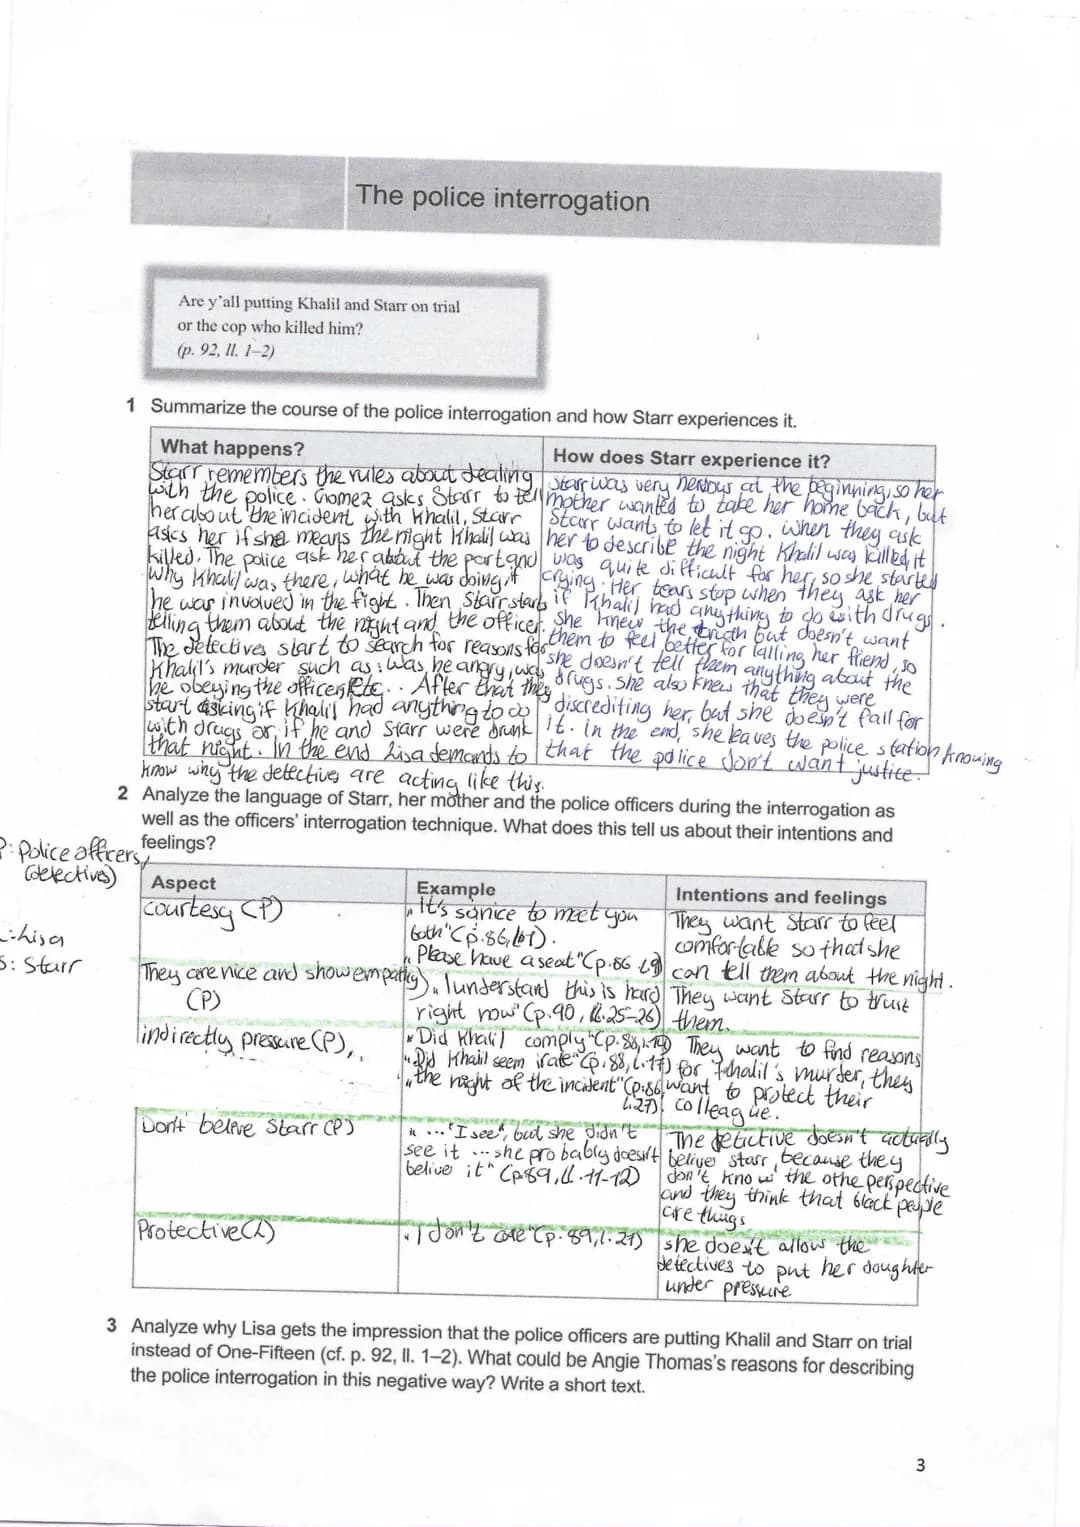 The police interrogation
Are y'all putting Khalil and Starr on trial
or the cop who killed him?
(p. 92, ll. 1–2)
1 Summarize the course of the police interrogation and how Starr experiences it.
What happens?
Starr remembers the rules about dealing
with the police. Gomez asks Starr to tell
her about the incident with Khalil, Starr
asks her if she means the night Khalil was
killed. The police ask her about the party and
why Khalil was there, what he was doing, if
he was involved in the fight. Then Starr starts
telling them about the night and the officer.
The detectives start to search for reasons for
Khalil's murder such as: was he angry, was
he obeying the officer, Etc... After that they
start asking if Khalil had anything to do
with drugs or if he and Starr were drunk
that night. In the end Lisa demands to
know why the detectives are acting like this.
How does Starr experience it?
Starr was very nervous at the beginning, so her
mother wanted to take her home back, but
Starr wants to let it go. When they ask
her to describe the night Khalil was killed, it
was quite difficult for her, so she started
crying. Her tears stop when they ask her
if Khalil had anything to do with drugs.
She knew the truth but doesn't want
them to feel better for killing her friend, so
she doesn't tell them anything about the
drugs. She also knew that they were
discrediting her, but she doesn't fall for
it. In the end, she leaves the police station knowing
that the police don't want justice.
2 Analyze the language of Starr, her mother and the police officers during the interrogation as
well as the officers' interrogation technique. What does this tell us about their intentions and
feelings?
P: Police officers/
(detectives)
L: Lisa
S: Starr
Aspect
Example
Intentions and feelings
courtesy (P)
"It's so nice to meet you
both" (p.86, l.1).
"Please have a seat" (p.86 l.9)
They want Starr to feel
comfortable so that she
can tell them about the night.
They are nice and show empathy
(P)
"I understand this is hard
right now" (p.90, ll.25-26)
They want Starr to trust
them.
indirectly pressure (P)
"Did Khalil comply" (p.88,
"Did Khalil seem irate" (p.88, l.17)
"the night of the incident" (p.86,
l.27)
They want to find reasons
for Khalil's murder, they
want to protect their
colleague.
Don't beleve Starr (P)
"..."I see", but she didn't
see it ... she probably doesn't
belive it" (p.89, ll.11-12)
The detective doesn't actually
belive starr, because they
don't know the othe perspective
and they think that black people
are thugs
Protective (L)
"I don't care" (p.89, l.21)
she doesn't allow the
detectives to put her doughter
under pressure
3 Analyze why Lisa gets the impression that the police officers are putting Khalil and Starr on trial
instead of One-Fifteen (cf. p. 92, ll. 1–2). What could be Angie Thomas's reasons for describing
the police interrogation in this negative way? Write a short text.
3